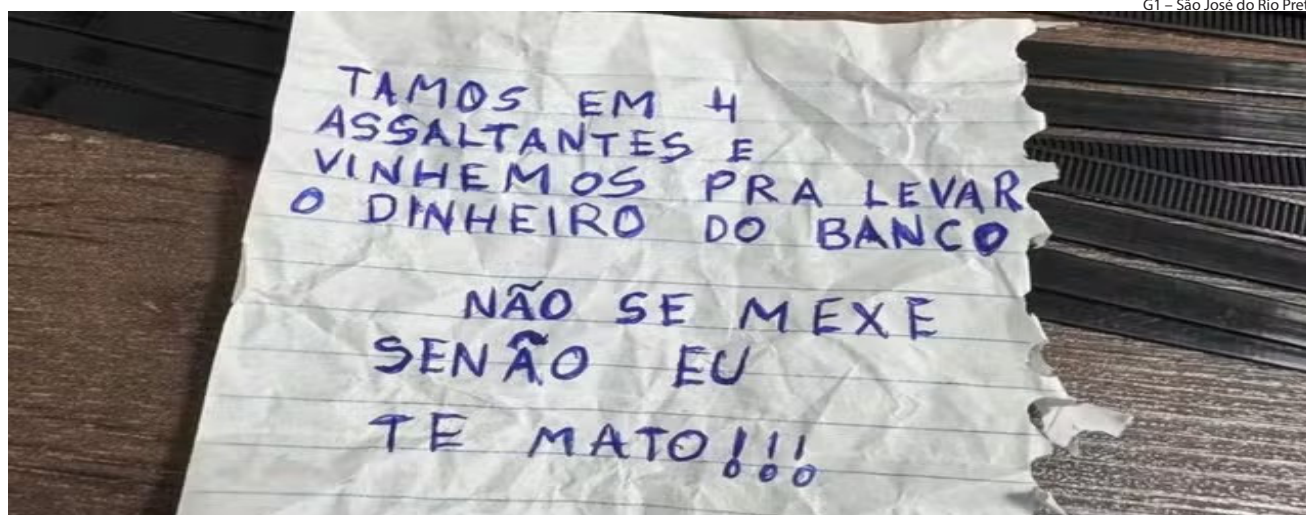 G1 – São José do Rio Pret
TAMOS EM 4
ASSALTANTES E
VINHEMOS PRA LEVAR
O DINHEIRO DO BANCO
NÃO SE MEXE
SENÃO EU
TE MATO!!!